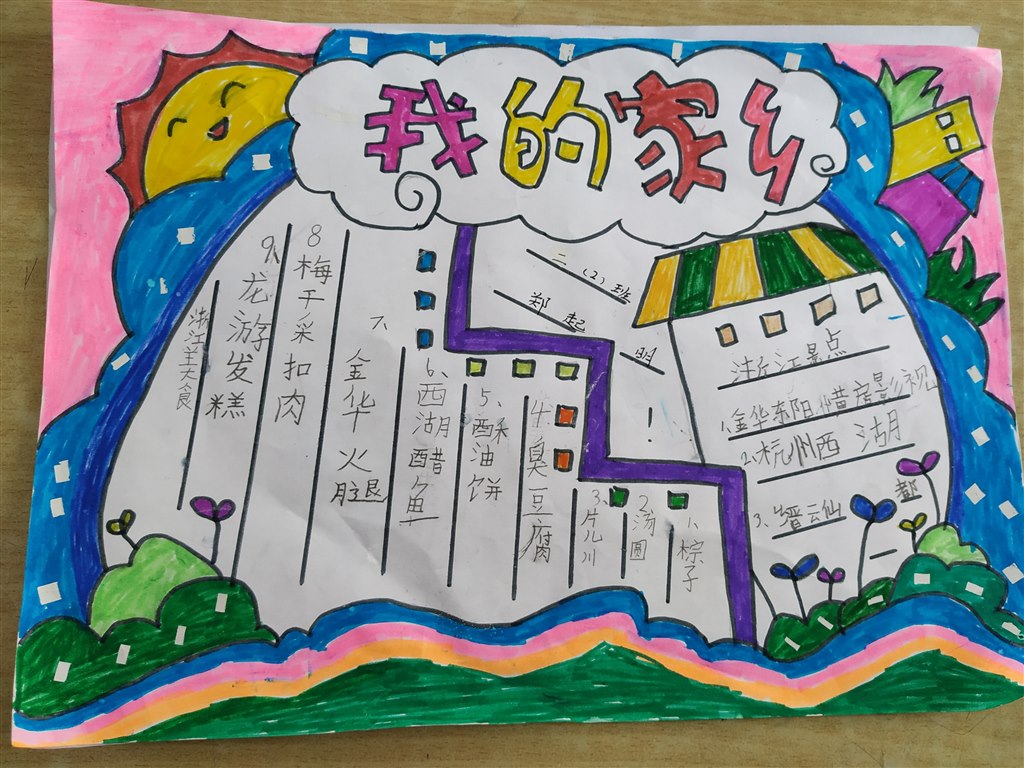 我的家乡
二（2）班
郑起明！
浙江美食
1、粽子
2、汤圆
3、片儿川
4、臭豆腐
5、酥油饼
6、西湖醋鱼
7、金华火腿
8梅干菜扣肉
9、龙游发糕
浙江景点
1、金华东阳横店影视
2、杭州西湖
3、缙云仙都